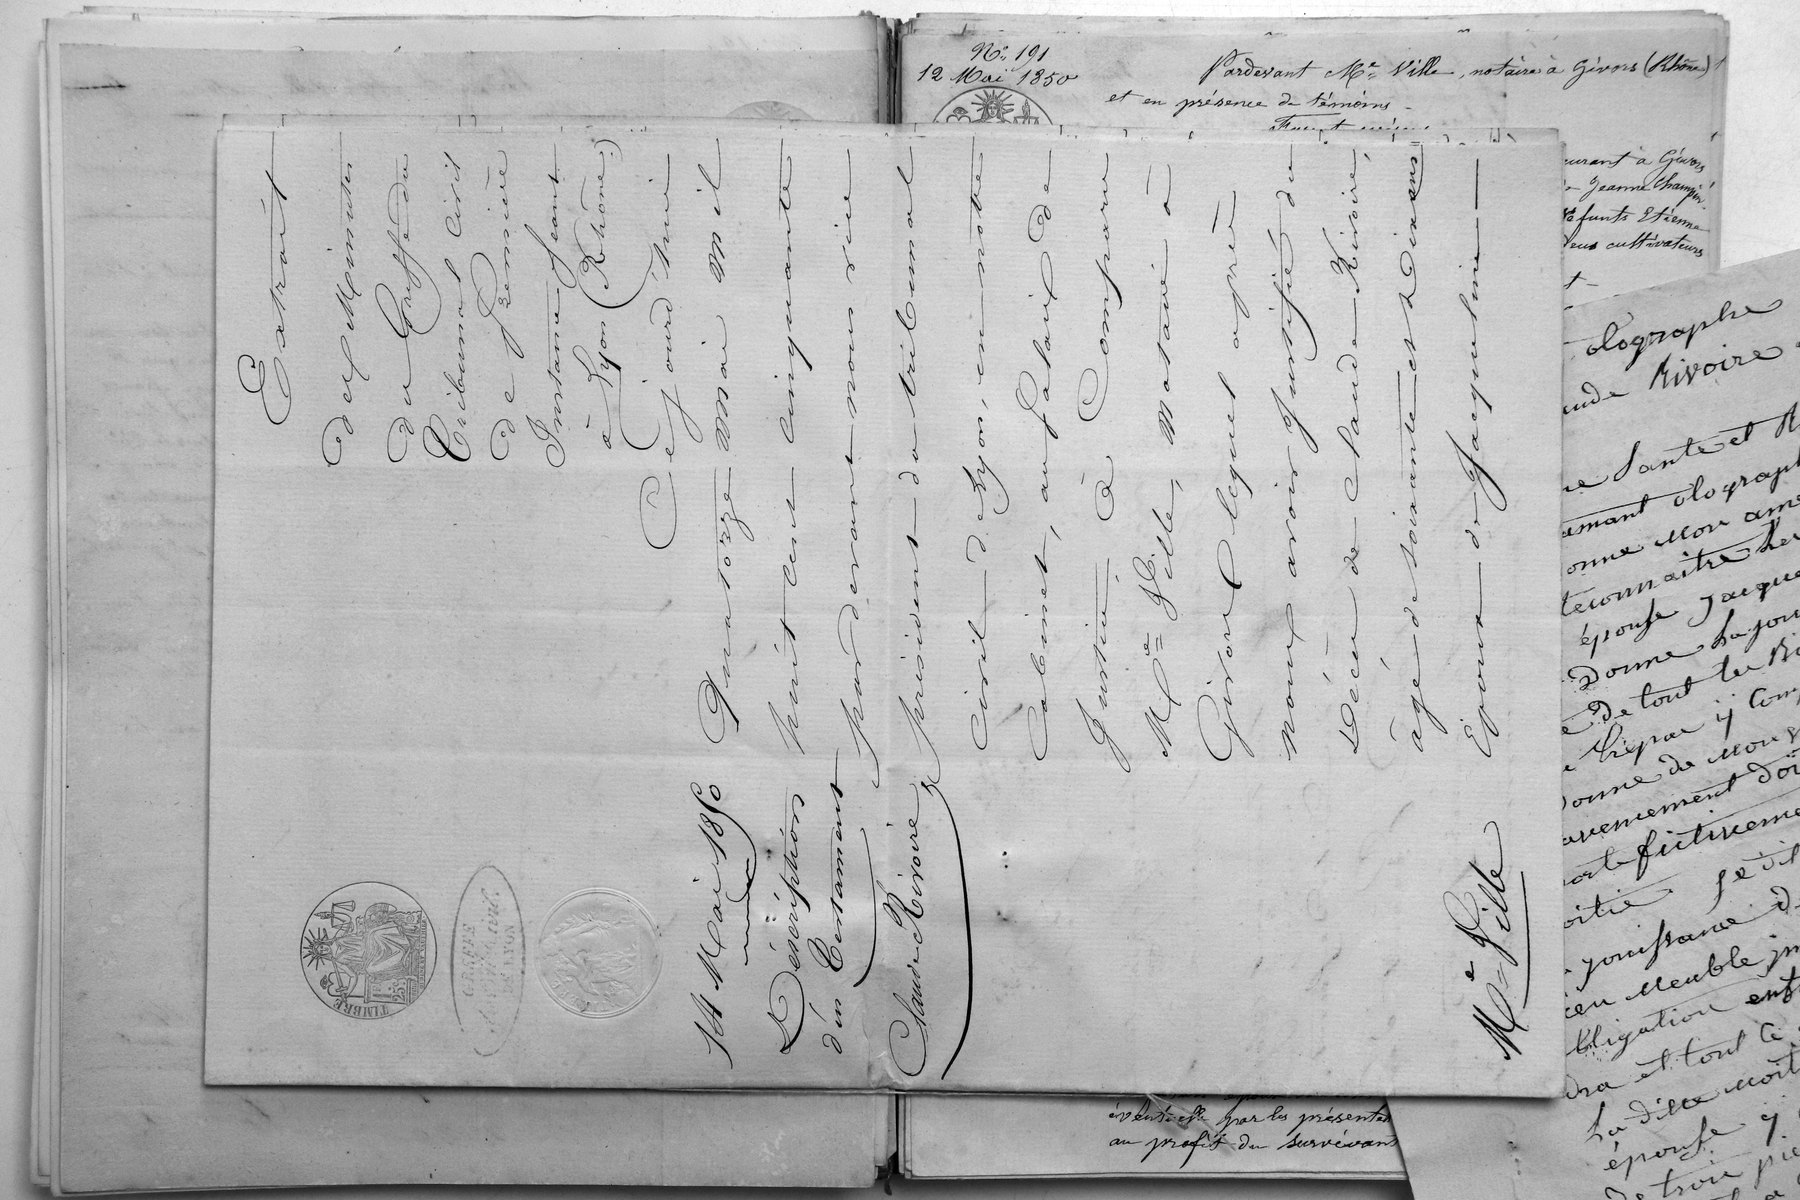 Nº 191
12 Mai 1850
Pardevant Me Ville, notaire à Givors (Rhône)
et en présence de témoins
Extrait
des Minutes
du Greffe du
Tribunal Civil
de Première
Instance Séant
à Lyon (Rhône)
Cejourd'hui
Quatorze mai mil
huit cent cinquante
pardevant nous
président du tribunal
civil de Lyon, en notre
Cabinet, au Palais de
Justice à Comparu
Me Ville, Notaire à
Givors lequel après
nous avoir Justifié du
Décès de Claude Rivoire,
âgé de soixante et dix ans
Epoux de Jacqueline
14 Mai 1850
Description
d'un Testament
Claude Rivoire
Me Ville
TIMBRE
25c
GREFFE
DE LYON
à Givors
Jeanne Champin
Etienne
cultivateurs
olographe
Rivoire
Santé et
olograph
onne Mon ame
reconnaitre
épouse Jacque
Donne La jou
de tout les Bi
y Com
onne de Mon
fictiveme
oitié
jouissance d
Meuble
bligation
et tout
La ditte moit
épouse y
de trois
par les présentes
au profit du survivan